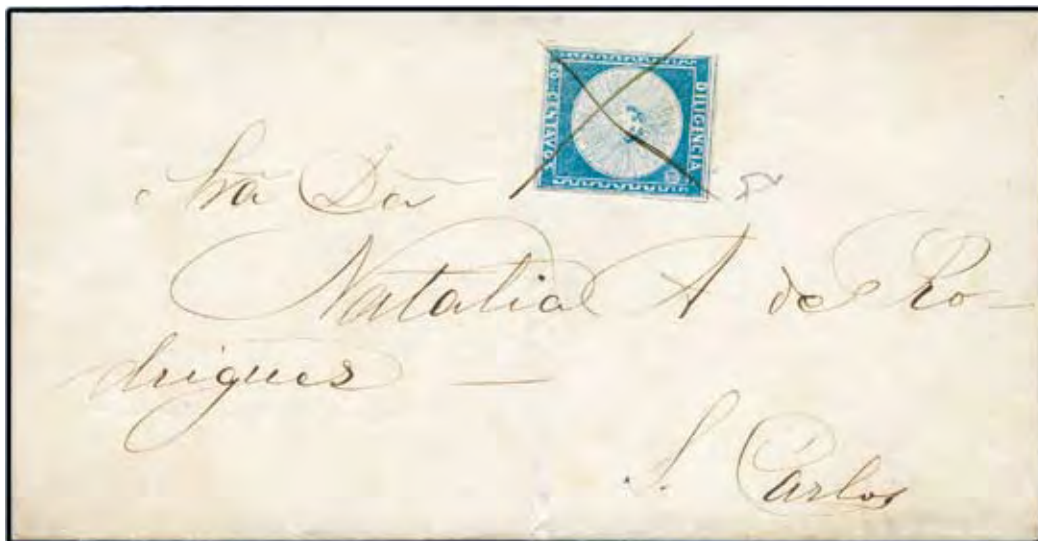 60 CENTAVOS
DILIGENCIA
Sra Dña
Natalia A de Ro-
drigues —
S. Carlos